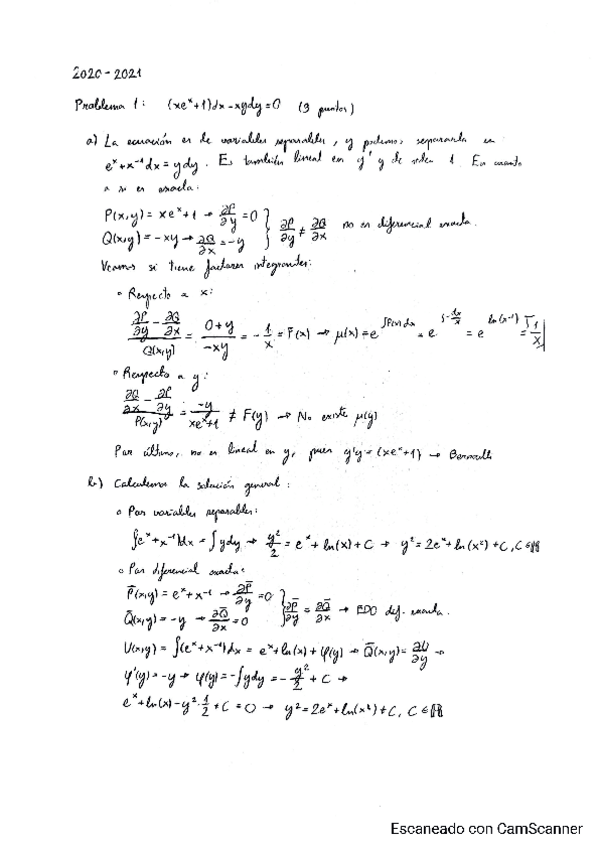 2020-2021
Problema 1: (xeˣ+1)dx-xydy=0 (3 puntos)
a) La ecuación es de variables separables, y podemos separarla en
eˣ+x⁻¹dx=ydy. Es también lineal en y' y de orden 1. En cuanto
a si es exacta:
P(x,y)=xeˣ+1 → ∂P/∂y=0
Q(x,y)=-xy → ∂Q/∂x=-y } ∂P/∂y ≠ ∂Q/∂x no es diferencial exacta.
Veamos si tiene factores integrantes:
• Respecto a x:
(∂P/∂y - ∂Q/∂x)/Q(x,y) = (0+y)/(-xy) = -1/x = F(x) → μ(x)=e^∫F(x)dx = e^∫-dx/x = e^ln(x⁻¹) = 1/x
• Respecto a y:
(∂Q/∂x - ∂P/∂y)/P(x,y) = -y/(xeˣ+1) ≠ F(y) → No existe μ(y)
Por último, no es lineal en y, pues y'y= (xeˣ+1) → Bernoulli
b) Calculemos la solución general:
• Por variables separables:
∫eˣ+x⁻¹dx = ∫ydy → y²/2 = eˣ+ln(x)+C → y²=2eˣ+ln(x²)+C, C∈ℝ
• Por diferencial exacta:
P̄(x,y)=eˣ+x⁻¹ → ∂P̄/∂y=0
Q̄(x,y)=-y → ∂Q̄/∂x=0 } ∂P̄/∂y = ∂Q̄/∂x → EDO dif. exacta.
U(x,y)=∫(eˣ+x⁻¹)dx = eˣ+ln(x)+φ(y) → Q̄(x,y)=∂U/∂y →
φ'(y)=-y → φ(y)=-∫ydy=-y²/2+C →
eˣ+ln(x)-y²·1/2+C=0 → y²=2eˣ+ln(x²)+C, C∈ℝ
Escaneado con CamScanner